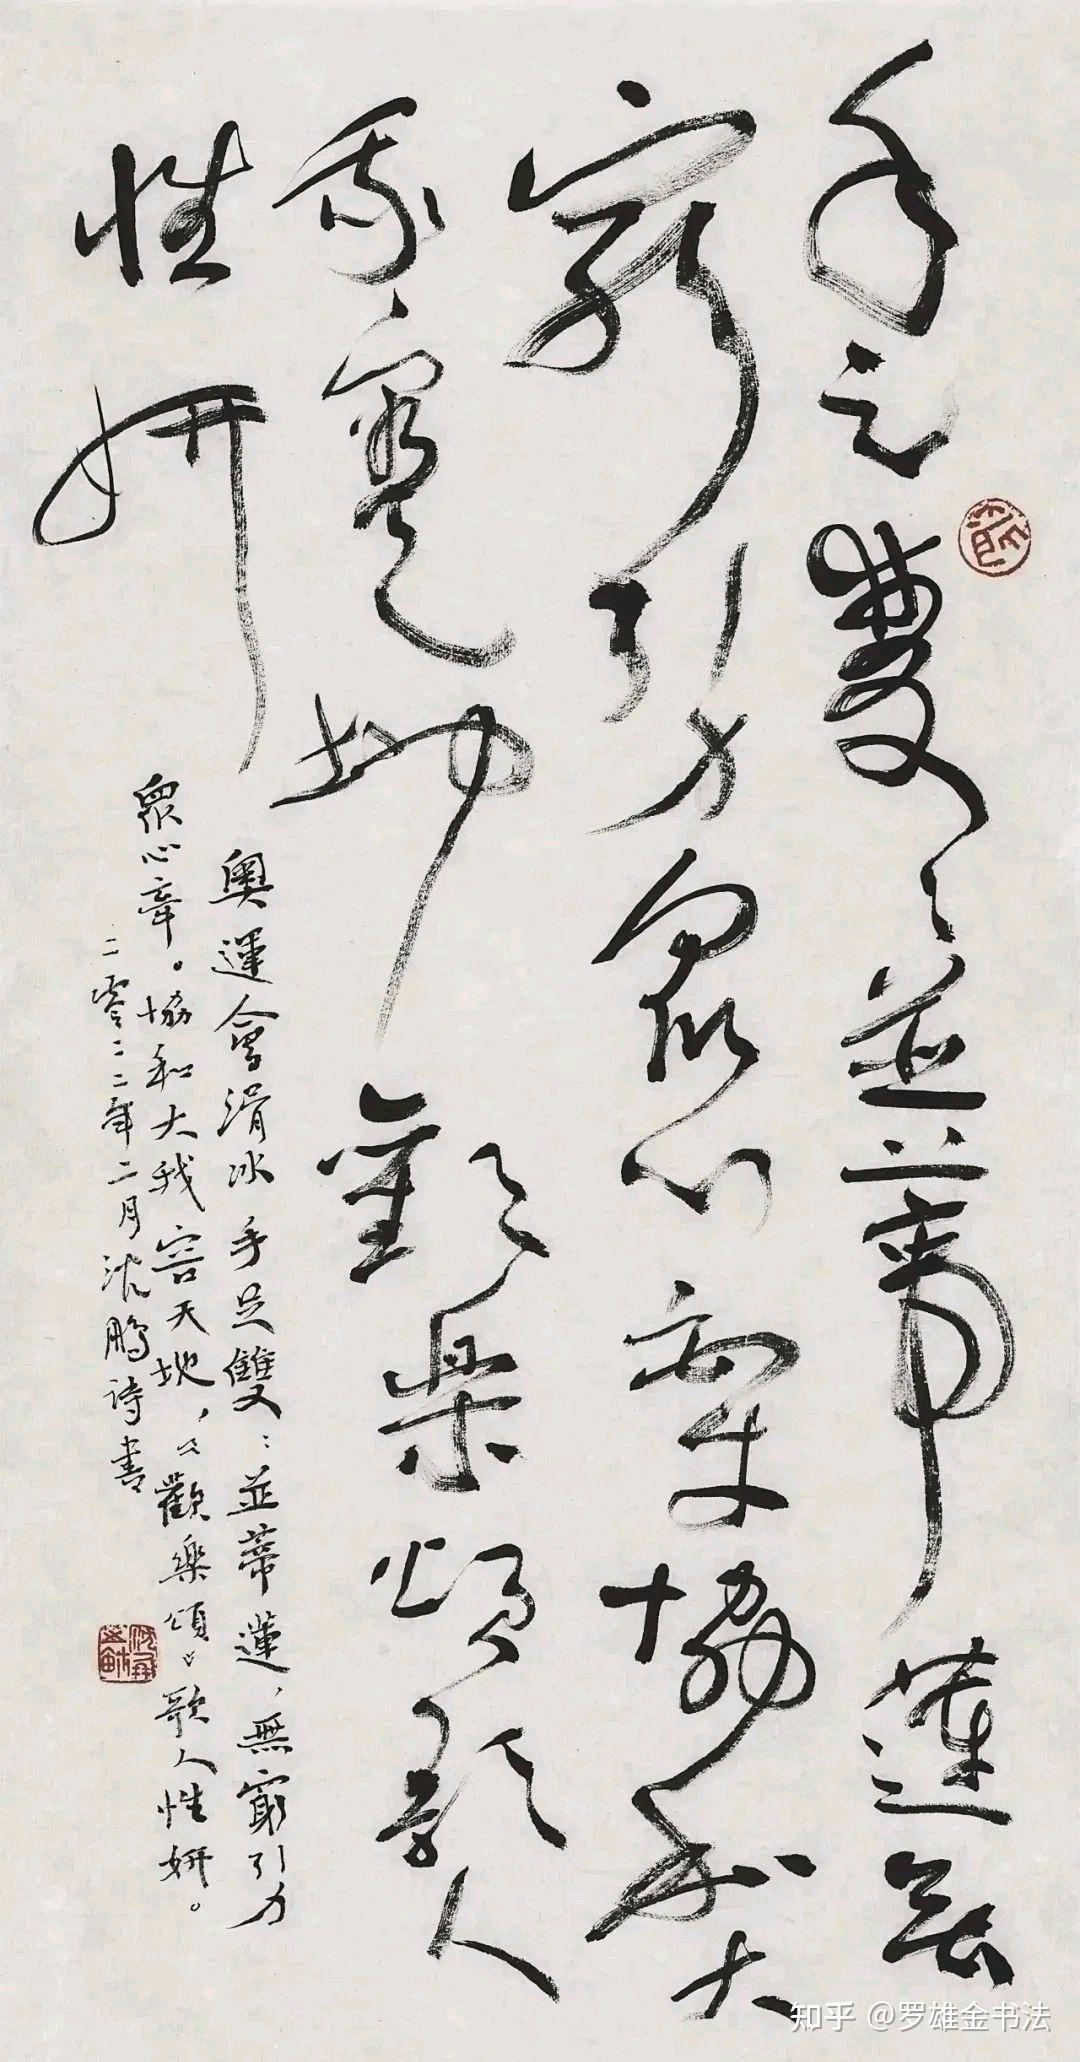 手足雙〻並蒂蓮無
窮引力眾心牽協和大
我容天地歡樂頌歌人
性妍
奧運會滑冰 手足雙〻並蒂蓮，無窮引力
眾心牽。協和大我容天地，《歡樂頌》歌人性妍。
二零二二年二月沈鵬詩書
知乎 @罗雄金书法